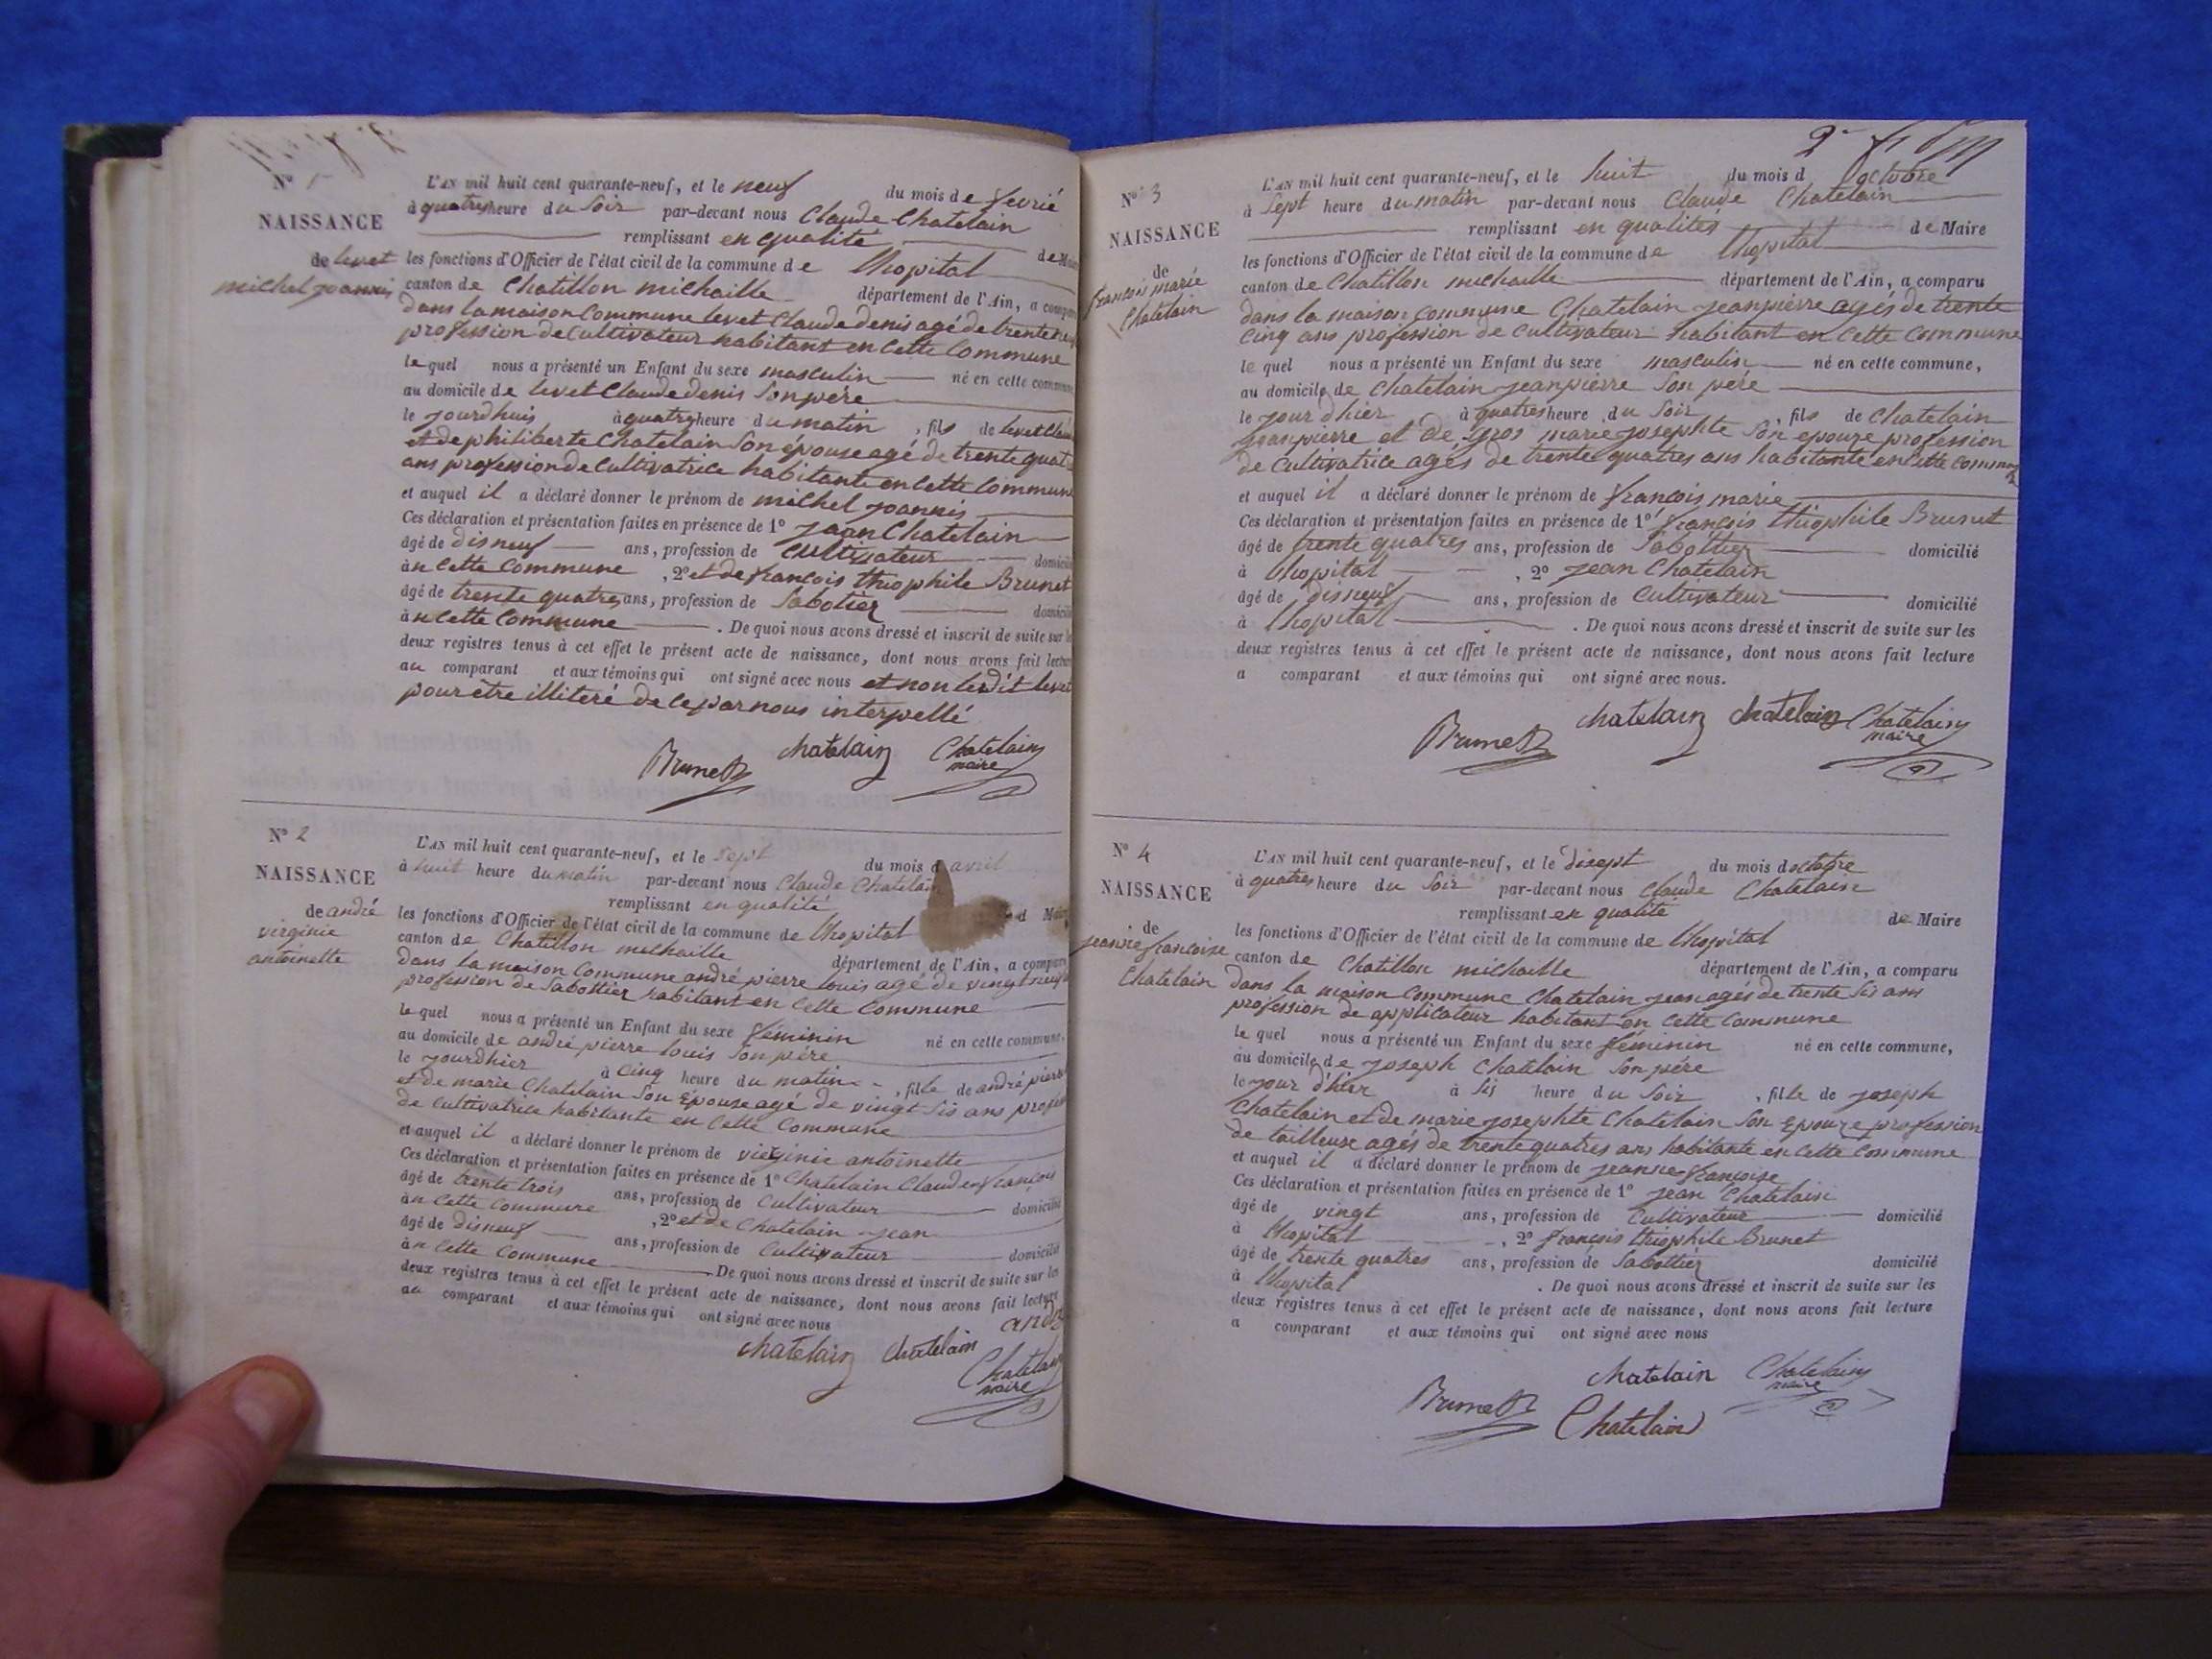 N° 1
NAISSANCE
de levet
michel joannis
L'AN mil huit cent quarante-neuf, et le neuf du mois de fevrié
à quatres heure du soir par-devant nous Claude Chatelain
remplissant en qualité de Maire
les fonctions d'Officier de l'état civil de la commune de lhopital
canton de Chatillon michaille département de l'Ain, a comparu
dans la maison Commune levet Claude denis agé de trente
profession de Cultivateur habitant en Cette Commune
le quel nous a présenté un Enfant du sexe masculin né en cette commune
au domicile de levet Claude denis Son père
le jourdhuis à quatres heure du matin, fils de levet Claude
et de philiberte Chatelain Son épouse agé de trente quatre
ans profession de Cultivatrice habitante en Cette Commune
et auquel il a déclaré donner le prénom de michel joannis
Ces déclaration et présentation faites en présence de 1° jean Chatelain
âgé de disneuf ans, profession de Cultivateur domicilié
à en Cette Commune, 2° et de francois théophile Brunet
âgé de trente quatres ans, profession de Sabotier domicilié
à en Cette Commune. De quoi nous avons dressé et inscrit de suite sur les
deux registres tenus à cet effet le présent acte de naissance, dont nous avons fait lecture
au comparant et aux témoins qui ont signé avec nous et non ledit levet
pour être illiteré de Ce par nous interpellé
Brunet chatelain Chatelain
maire
N° 2
NAISSANCE
de andré
virginie
antoinette
L'AN mil huit cent quarante-neuf, et le Sept du mois d avril
à huit heure du matin par-devant nous Claude Chatelain
remplissant en qualité d Maire
les fonctions d'Officier de l'état civil de la commune de lhopital
canton de Chatillon michaille département de l'Ain, a comparu
dans la maison Commune andré pierre louis agé de vingt neuf
profession de Sabottier habitant en Cette Commune
le quel nous a présenté un Enfant du sexe féminin né en cette commune,
au domicile de andré pierre louis Son père
le jourdhier à Cinq heure du matin, fille de andré pierre
et de marie Chatelain Son Epouse agé de vingt Sis ans
de Cultivatrice habitante en Cette Commune
et auquel il a déclaré donner le prénom de virginie antoinette
Ces déclaration et présentation faites en présence de 1° Chatelain Claude françois
âgé de trente trois ans, profession de Cultivateur domicilié
à en Cette Commune, 2° et de Chatelain jean
âgé de disneuf ans, profession de Cultivateur domicilié
à en Cette Commune. De quoi nous avons dressé et inscrit de suite sur les
deux registres tenus à cet effet le présent acte de naissance, dont nous avons fait lecture
au comparant et aux témoins qui ont signé avec nous
chatelain chatelain
Chatelain
maire
N° 3
NAISSANCE
de
francois marie
Chatelain
L'AN mil huit cent quarante-neuf, et le huit du mois d octobre
à Sept heure du matin par-devant nous Claude Chatelain
remplissant en qualités de Maire
les fonctions d'Officier de l'état civil de la commune de lhopital
canton de Chatillon michaille département de l'Ain, a comparu
dans la maison commune Chatelain jeanpierre agés de trente
Cinq ans profession de Cultivateur habitant en Cette Commune
le quel nous a présenté un Enfant du sexe masculin né en cette commune,
au domicile de Chatelain jeanpierre Son père
le jour d'hier à quatres heure du Soir, fils de Chatelain
jeanpierre et de gros marie josephte Son epouze profession
de Cultivatrice agés de trente quatres ans habitante en Cette Commune
et auquel il a déclaré donner le prénom de françois marie
Ces déclaration et présentation faites en présence de 1° françois théophile Brunet
âgé de trente quatres ans, profession de Sabottier domicilié
à lhopital, 2° jean Chatelain
âgé de disneuf ans, profession de Cultivateur domicilié
à lhopital. De quoi nous avons dressé et inscrit de suite sur les
deux registres tenus à cet effet le présent acte de naissance, dont nous avons fait lecture
a comparant et aux témoins qui ont signé avec nous.
Brunet chatelain chatelain Chatelain
maire
N° 4
NAISSANCE
de
jeanne francoise
Chatelain
L'AN mil huit cent quarante-neuf, et le disept du mois doctobre
à quatres heure du Soir par-devant nous Claude Chatelain
remplissant en qualité de Maire
les fonctions d'Officier de l'état civil de la commune de lhopital
canton de Chatillon michaille département de l'Ain, a comparu
dans la maison Commune Chatelain jean agés de trente Sis ans
profession de applicateur habitant en Cette Commune
le quel nous a présenté un Enfant du sexe féminin né en cette commune,
au domicile de joseph Chatelain Son père
le jour d'hier à Sis heure du Soir, fille de joseph
Chatelain et de marie josephte Chatelain Son Epouze profession
de tailleuse agés de trente quatres ans habitante en Cette Commune
et auquel il a déclaré donner le prénom de jeanne françoise
Ces déclaration et présentation faites en présence de 1° jean Chatelain
âgé de vingt ans, profession de Cultivateur domicilié
à lhopital, 2° françois théophile Brunet
âgé de trente quatres ans, profession de Sabottier domicilié
à lhopital. De quoi nous avons dressé et inscrit de suite sur les
deux registres tenus à cet effet le présent acte de naissance, dont nous avons fait lecture
a comparant et aux témoins qui ont signé avec nous
chatelain Chatelain
maire
Brunet Chatelain